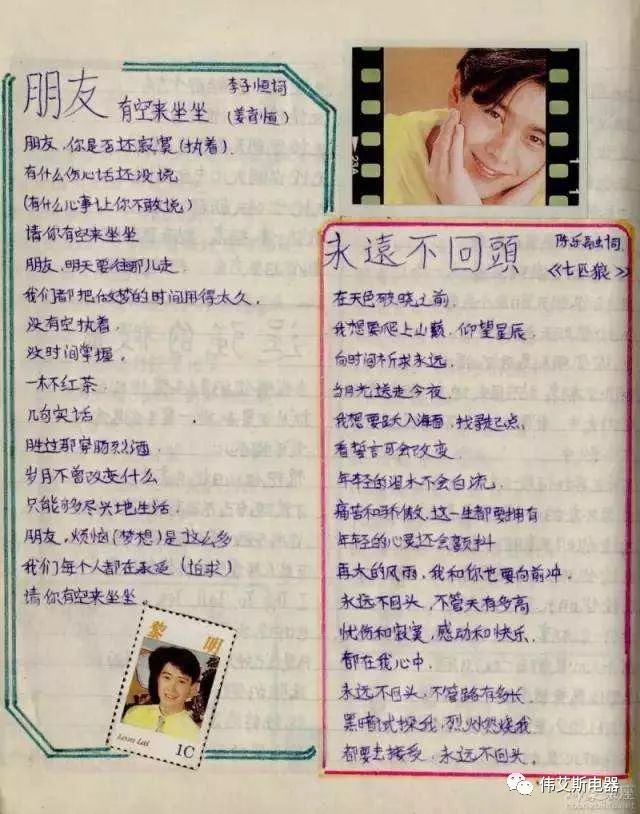 朋友
李子恒词
有空来坐坐
(姜育恒)
朋友,你是否还寂寞(执着).
有什么伤心话还没说
(有什么心事让你不敢说)
请你有空来坐坐
朋友,明天要往哪儿走
我们都把做梦的时间用得太久.
没有空执着.
没时间掌握.
一杯红茶
几句实话
胜过那穿肠烈酒
岁月不曾改变什么
只能够尽兴地生活
朋友,烦恼(梦想)是这么多
我们每个人都在承受(追求)
请你有空来坐坐.
黎明
Leon Lai
1C
23A
永遠不回頭
陈乐融词.
《七匹狼》
在天色破晓之前
我想要爬上山巅.仰望星辰
向时间祈求永远.
当月光送走今夜.
我想要跃入海面,找寻起点,
看誓言可会改变.
年轻的泪水不会白流,
痛苦和骄傲,这一生都要拥有
年轻的心灵还会颤抖
再大的风雨,我和你也要向前冲.
永远不回头,不管天有多高
忧伤和寂寞,感动和快乐,
都在我心中.
永远不回头,不管路有多长
黑暗试探我,烈火燃烧我
都要去接受,永远不回头.
伟艾斯电器